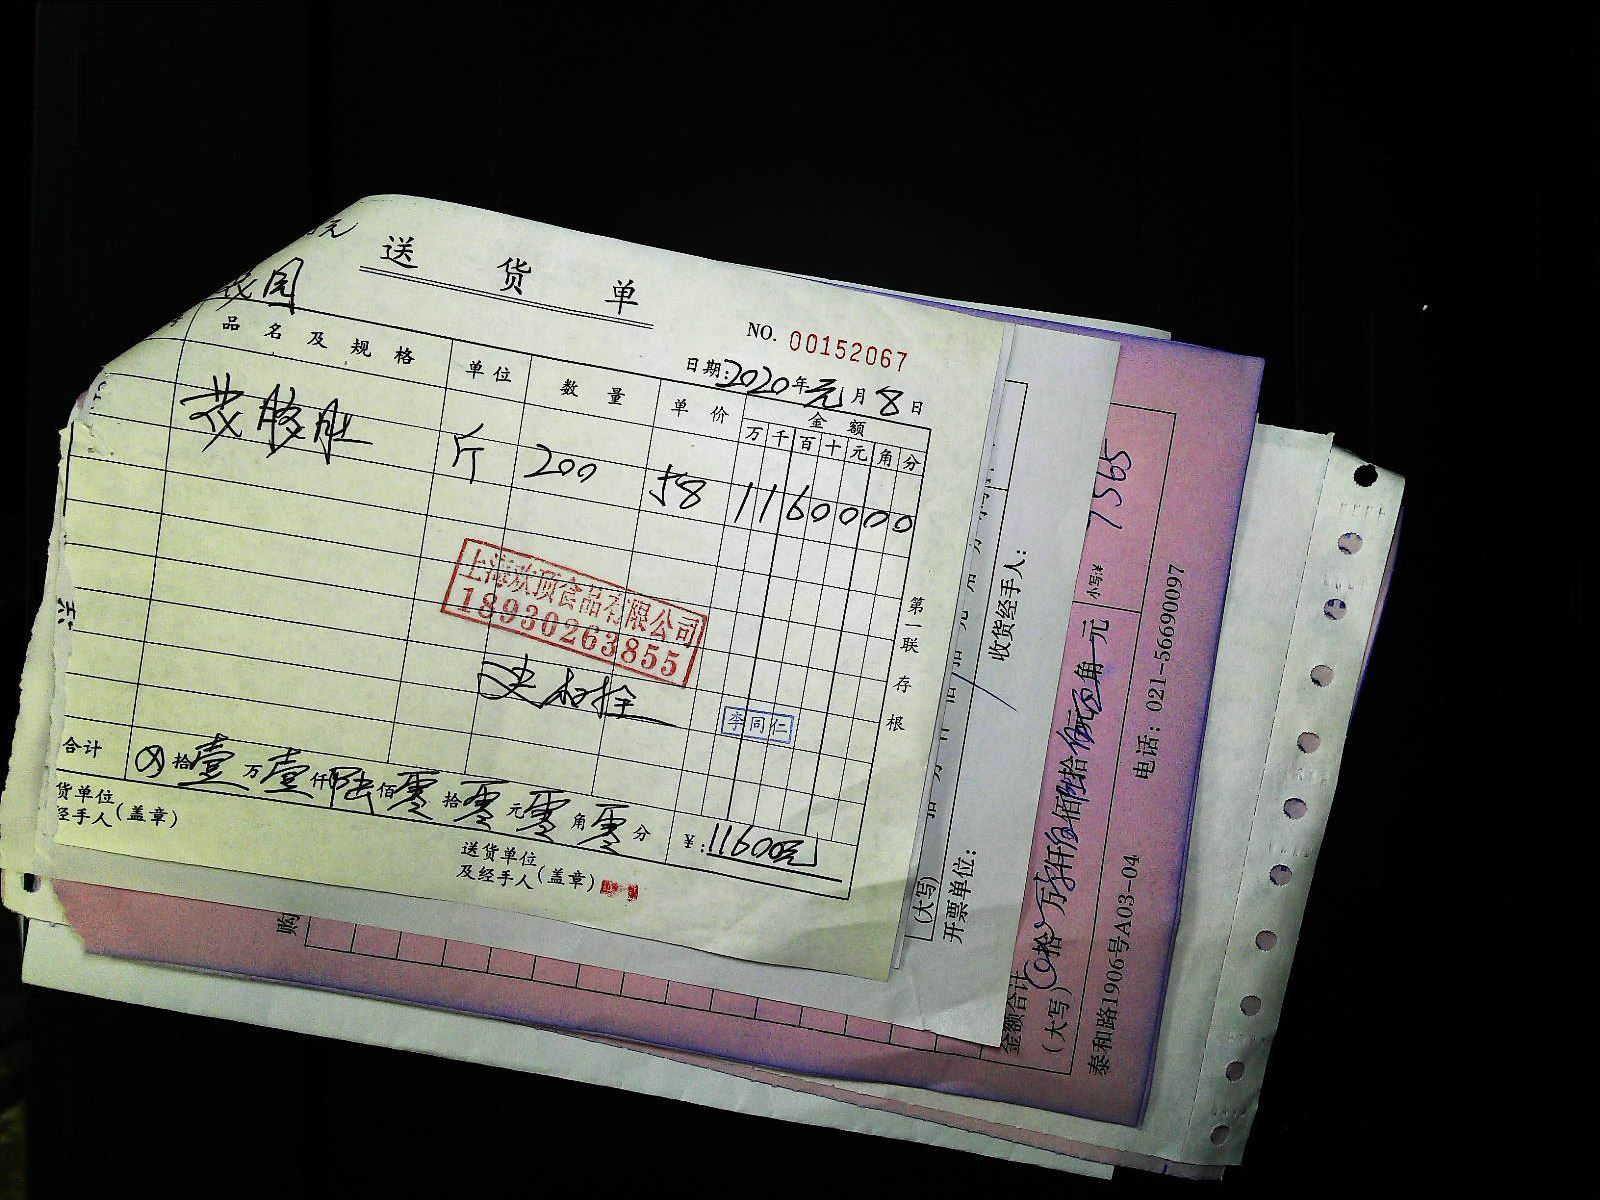 元
园
送货单
NO. 00152067
日期:2020年元月8日
品名及规格 单位 数量 单价 金额
万千百十元角分
斤 200 58 1160000
上海欢顶食品有限公司
18930263855
李同仁
第一联 存根
合计 ⊗拾壹万壹仟陆佰零拾零元零角零分 ¥:11600元
货单位
经手人(盖章)
送货单位
及经手人(盖章)
收货经手人:
(大写)
开票单位:
购
小写:¥ 7565
金额合计
(大写)
泰和路1906号A03-04 电话:021-56690097